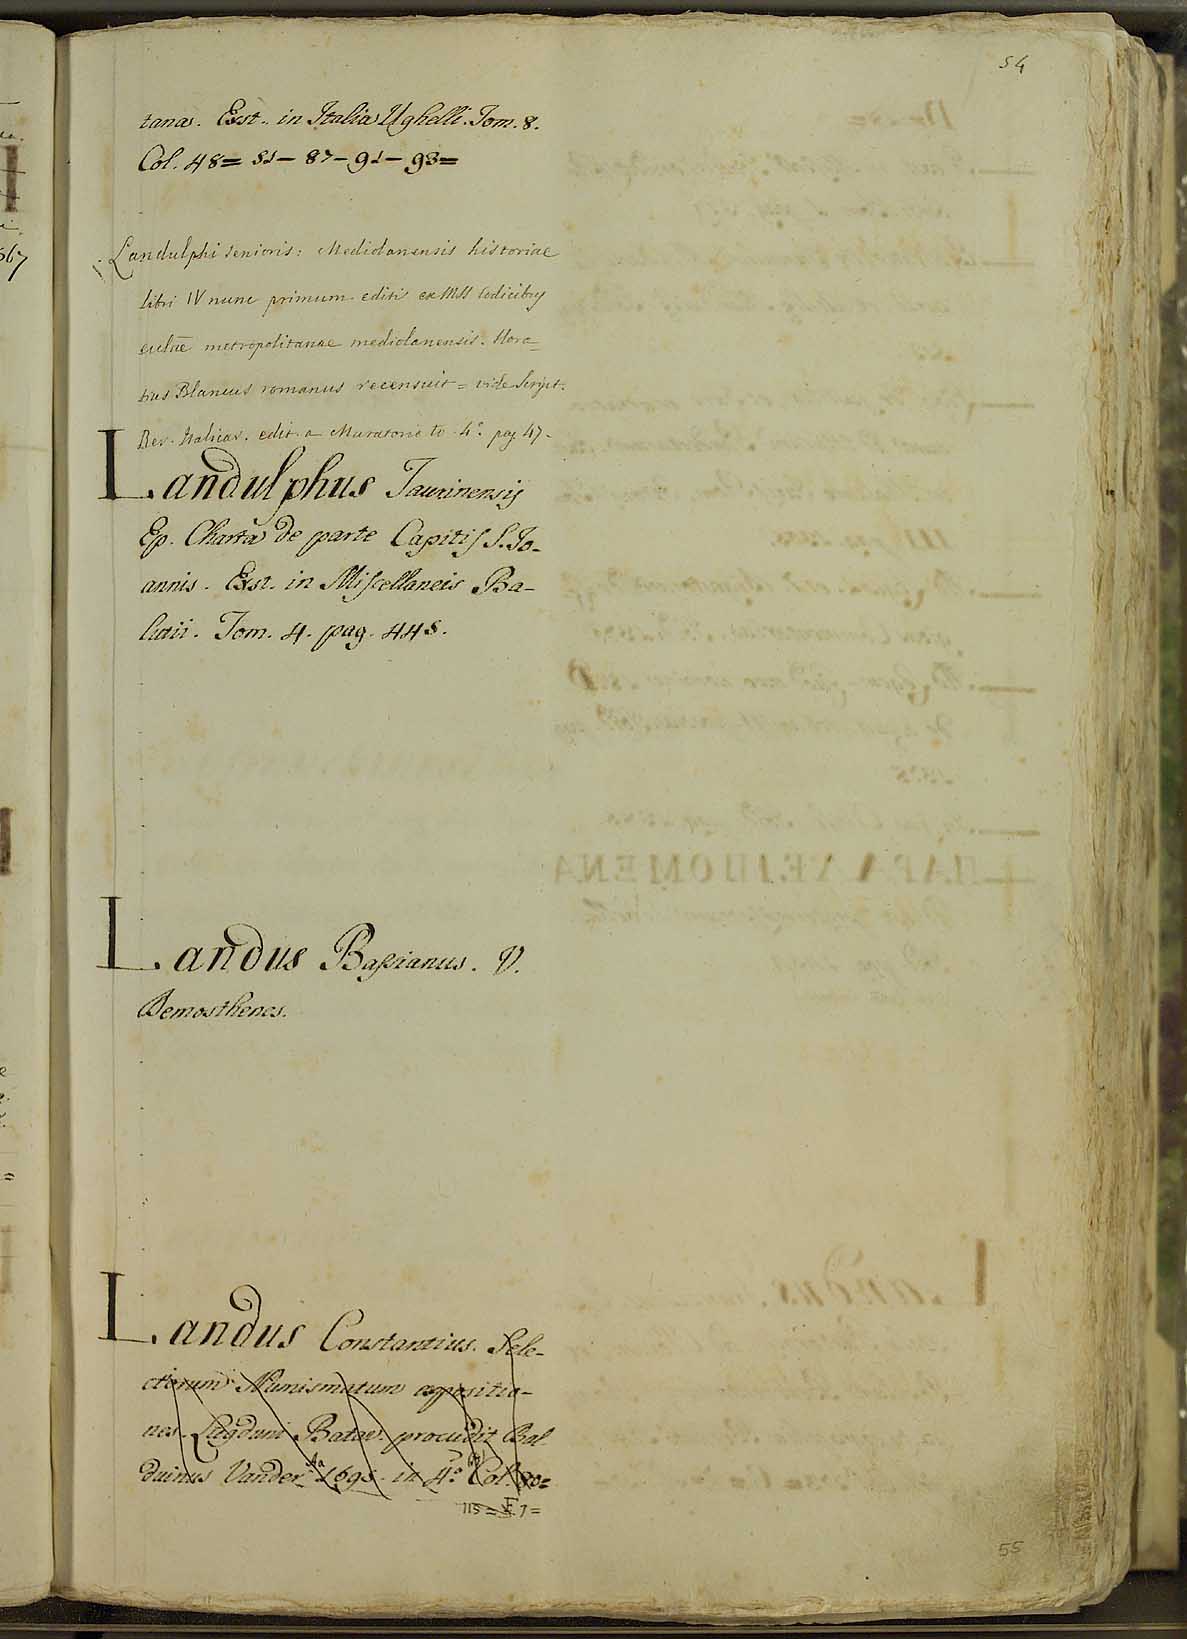 54
tana. Exst. in Italia Ughelli. Tom. 8.
Col. 48= 51– 87– 91– 93=
Landulphi senioris: Mediolanensis historiae
libri IV nunc primum editi ex MSS codicibus
metropolitanae mediolanensis. Hora=
tius Blancus romanus recensuit = vide Script.
Rer. Italicar. edit. a Muratorio to. 4º. pag. 47.
Landulphus Taurinensis
Ep. Charta de parte Capitis S. Jo-
annis. Exst. in Miscellaneis Ba-
lutii. Tom. 4. pag. 445.
Landus Bassianus. V.
Demosthenes.
Landus Constantius. Sele-
ctorum Numismatum expositio-
nes. Lugduni Batav. procudit Bal
duinus Vander Aa 1695. in 4º. Col.
115 = 7 =
55
ΠΑΡΑΛΕΙΠΟΜΕΝΑ